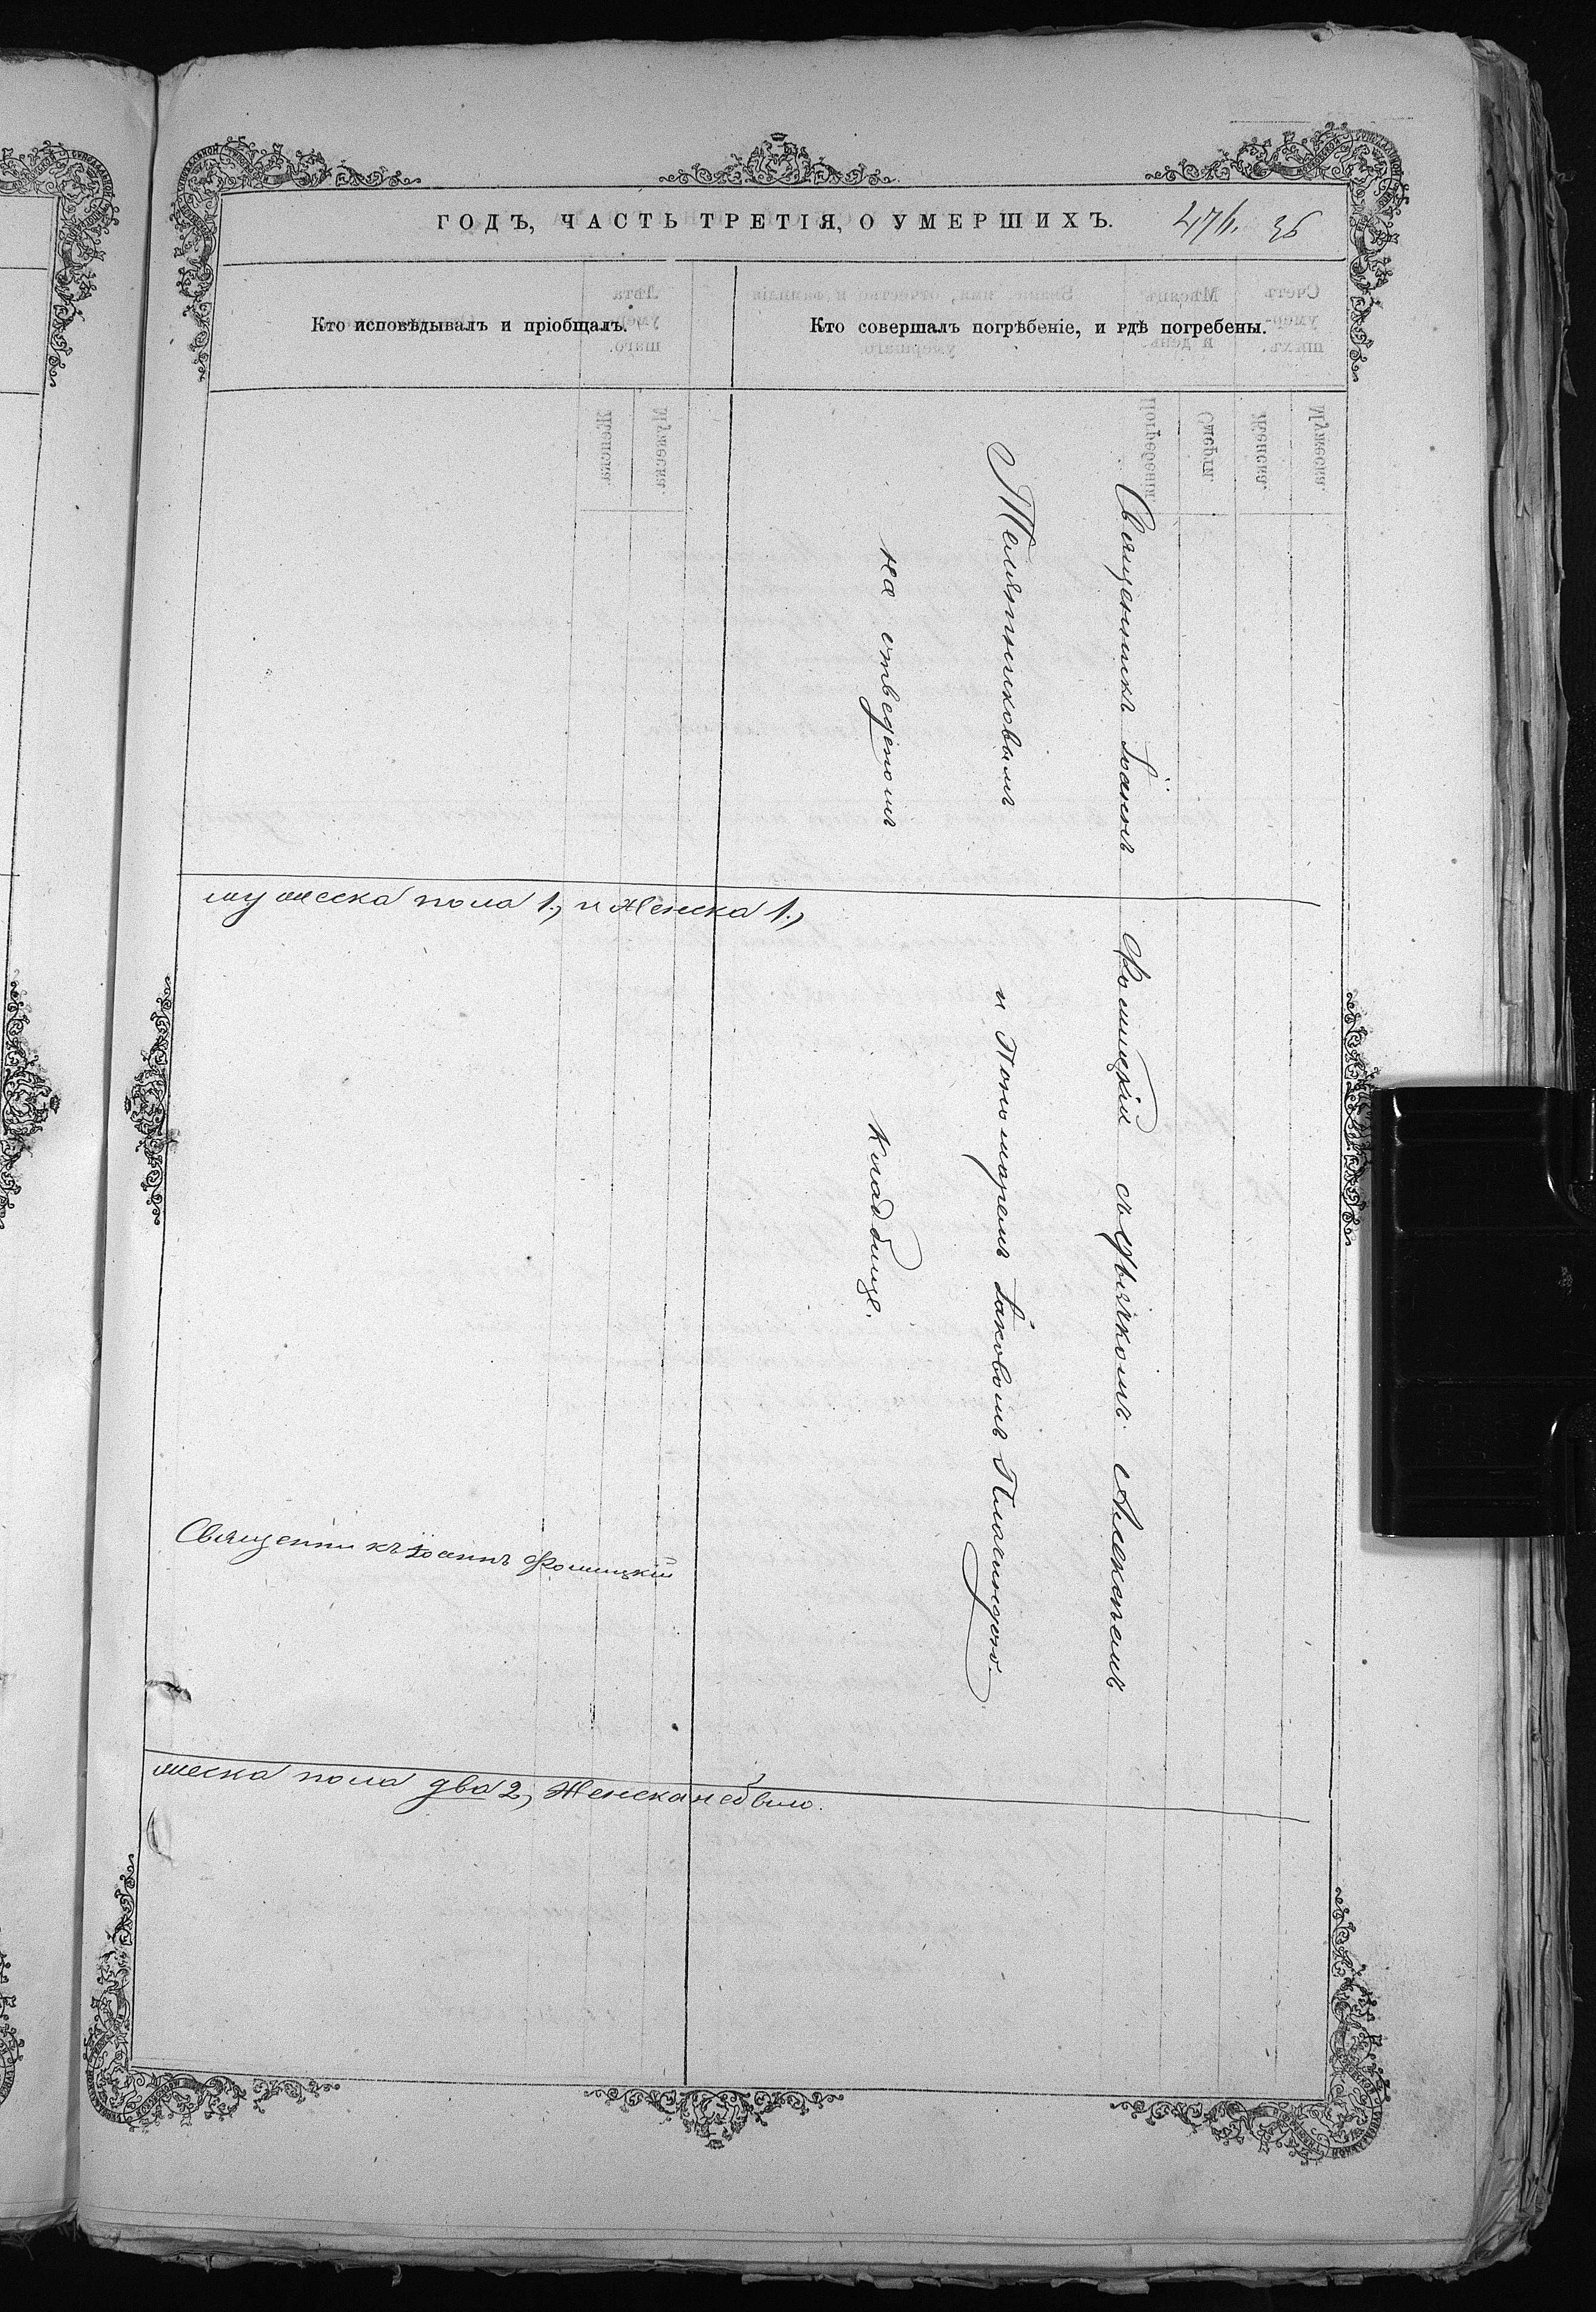 ГОДЪ, ЧАСТЬ ТРЕТІЯ, О УМЕРШИХЪ.
36
Кто исповѣдывалъ и пріобщалъ.
Кто совершалъ погрѣбеніе, и гдѣ погребены.
Священникъ Іоаннъ Фомицкій съ Дьячкомъ Алексѣемъ
Телятниковымъ и Пономаремъ Іаковомъ
на отведеномъ кладбище.
мужеска пола 1, и женска 1,
Священникъ Іоаннъ Фомицкій
жеска пола два 2, Женска небыло.